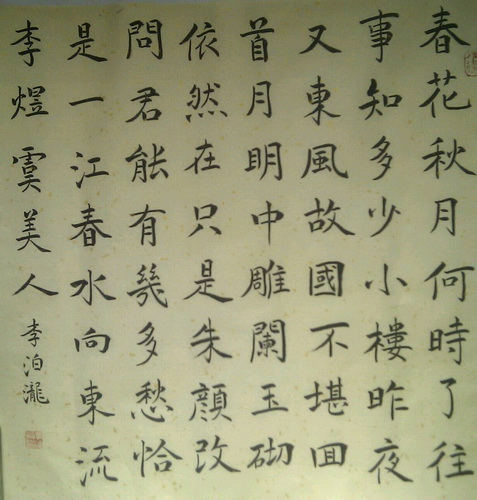 春花秋月何時了往
事知多少小樓昨夜
又東風故國不堪回
首月明中雕闌玉砌
依然在只是朱顔改
問君能有幾多愁恰
是一江春水向東流
李煜虞美人
李泊瀧